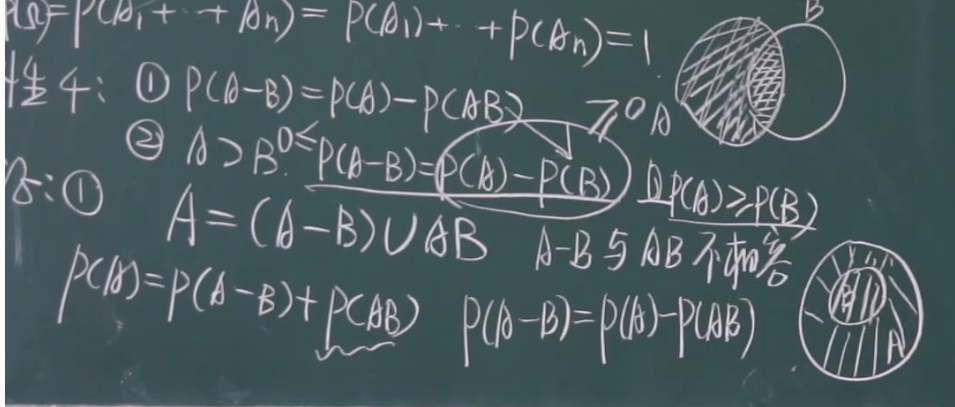 P(Ω)=P(A₁+‥+An)=P(A₁)+‥+P(An)=1
性4: ① P(A-B)=P(A)-P(AB)
≥0
A
B
② A⊃B. 0≤P(A-B)=P(A)-P(B) 且P(A)≥P(B)
①
A=(A-B)∪AB A-B与AB不相容
P(A)=P(A-B)+P(AB) P(A-B)=P(A)-P(AB)
B
A